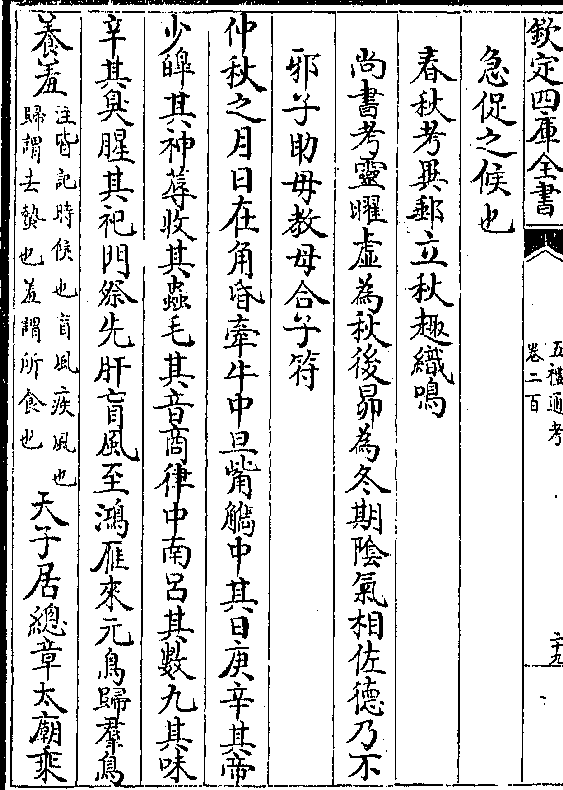 欽定四庫全書
五禮通考
卷二百
二十九
急促之候也
春秋考異郵立秋趣織鳴
尚書考靈曜虛為秋後昴為冬期陰氣相佐德乃不
邪子助母敎母合子符
仲秋之月日在角昏牽牛中旦觜觿中其日庚辛其帝
少皥其神蓐收其蟲毛其音商律中南呂其數九其味
辛其臭腥其祀門祭先肝盲風至鴻雁來元鳥歸羣鳥
養羞
注皆記時候也盲風疾風也
歸謂去蟄也羞謂所食也
天子居總章太廟乘